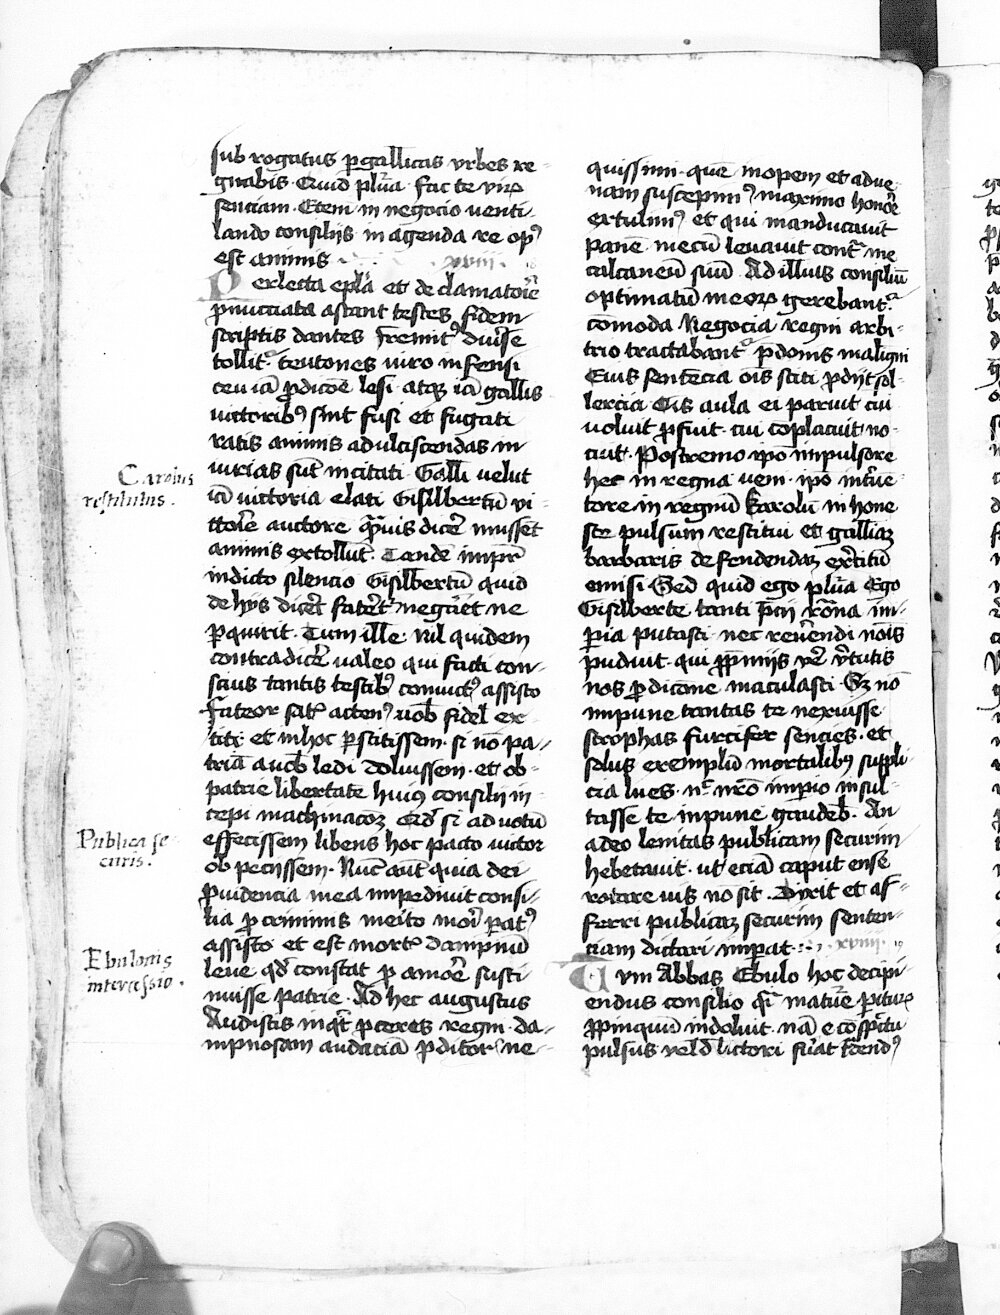 sub rogatus p gallicas vrbes re-
gnabis. Quid plu̅a fac te viro
senciam. Etem̅ in negocio uenti-
lando consilijs in agenda re op9
est animis xviii.
Perlecta epl̅a et declamatorie̅
pn̅u̅cciata astant testes fidem
scriptis dantes fremit9 diu̅se
tollit᷑ teutones uiro infensi
ceu ia̅ p̱dic̅oe lesi. atqȝ ia̅ gallis
uictorib9 sint fusi et fugati
ratis animis ad ulciscendas in
iurias su̅t incitati. Galli uelut
ia̅ uictoria elati Gisilbertu̅ vi-
ctorie auctore q̅uis dice̅ mussent
animis extollu̅t. Tande̅ imp̅r
indicto silencio Gisilbertu̅ quid
de hijs dice̅t fate̅t negaret ne
p̱quirit. Tum ille. nil quidem
contradice̅ ualeo qui facti con-
scius tantis testib9 conuict9 assisto
fateor sat᷑ acten9 uob̅ fidel̅ ex-
titi et in hoc p̱stitissem. si no̅ pa-
tria̅ a uob̅ ledi doluissem. et ob-
patrie libertate̅ hui9 consilij in-
cepi machinac̅oȝ Qd̅ si ad uotu̅
effecissem libens hoc pacto uictor
ob pecijssem. Nu̅c aut̅ quia dei
p̱uidencia mea impediuit consi-
lia p̱ criminis me̅ito mori̅ pat9
assisto et est mort᷑ dampnu̅
leue qd̅ constat p̱ amore̅ susti
nuisse patrie. Ad hec augustus
Audistis inq̅t p̱ceres regni. da-
mpnosam audacia̅ p̱ditor᷑ ne-
quissimi. que̅ inopem et adue
nam suscepim9 maximo honore̅
extulim9 et qui manducauit
pane̅ mecu̅ leuauit cont̅ me
calcaneu̅ suu̅. Ad illius consiliu̅
optimatu̅ meoꝝ gerebant᷑
co̅moda Negocia regni arbi-
trio tractabant᷑ p̱donis maligni
Eius sentencia o̅is stati p̱dijt sol-
lercia Ois aula ei paruit cui
uoluit p̱fuit. cui co̅placuit no-
cuit. Postremo ip̅o impulsore
hec in regna ueni. ip̅o intu̅e-
tore in regnu̅ karolu̅ in hone
ste pulsum restitui et galliaȝ
barbaris defendendaȝ ex̅citu̅
emisi. Sed quid ego plu̅a Ego
Gisilberte tanti p̅cij ro̅na im-
p̱ia putasti nec reue̅endi no̅is
puduit. qui p̱p̱inijs ve̅ v̅tutis
nos p̱dic̅one maculasti. Sȝ no̅
impune tantas te nexuisse
strophas furcifer sencies. et
solus exemplu̅ mortalib9 suppli
cia lues. n᷑ n̅ro imp̱io insul-
tasse te impune gaudeb̅. An
adeo lenitas publicam securim
hebetauit. ut ecia̅ caput ense̅
rotare uis no̅ sit. Dixit et af-
ferri publicaȝ securim senten-
ciam dictari imp̱at. xviiii.
Tum Abbas Ebulo hoc decipi
endus consilio q̅i matu̅e p̱ituꝝ
p̱pinquu̅ indoluit. na̅ e co̅sp̅ctu
pulsus uel d̅ lictori fu̅at t̅dend9
Carolus
restitutus.
Publica se
curis.
Ebulonis
intercessio.